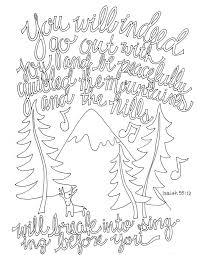 You will indeed
go out with
joy and be peacefully
guided; the mountains
and the hills
Isaiah 55:12
will break into sing
ing before you